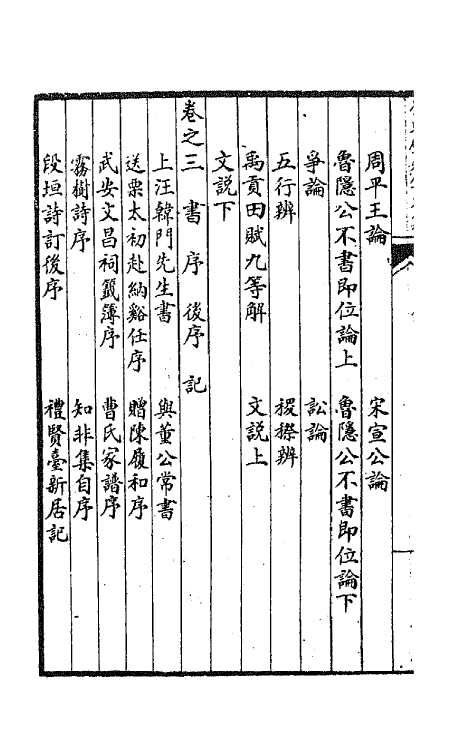 周平王論　宋宣公論
魯隱公不書即位論上　魯隱公不書即位論下
爭論　訟論
五行辨　稷䄍辨
禹貢田賦九等解　文説上
文説下
卷之三　書　序　後序　記
上汪韓門先生書　與董公常書
送栗太初赴納谿任序　贈陳履和序
武安文昌祠籤簿序　曹氏家譜序
霧樹詩序　知非集自序
段垣詩訂後序　禮賢臺新居記